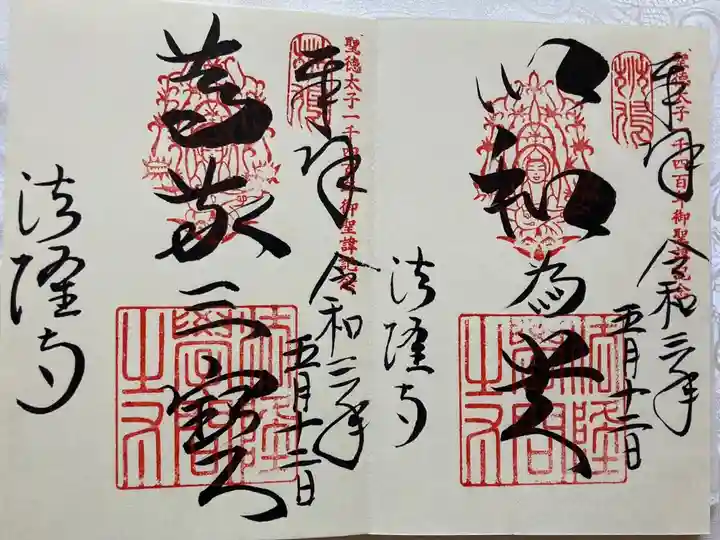 聖徳太子一千四百年御聖諱記念
奉拝
令和三年
五月十二日
以和為貴
法隆寺
聖徳太子一千四百年御聖諱記念
奉拝
令和三年
五月十二日
篤敬三宝
法隆寺